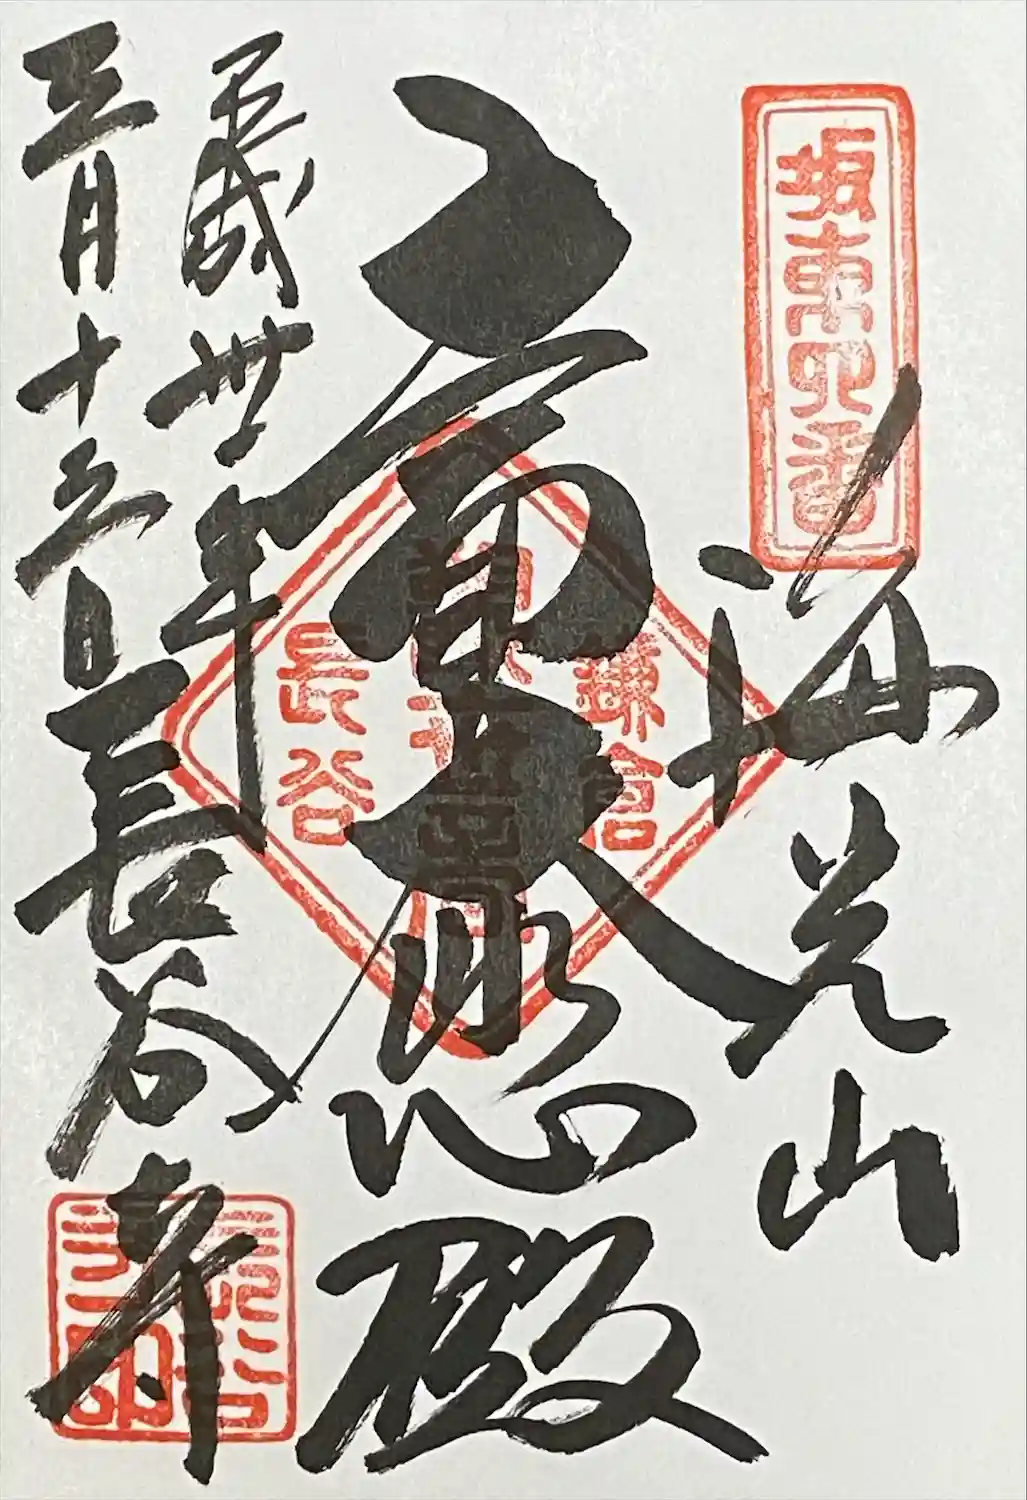 坂東四番
海光山
面大悲殿
鎌倉
長谷
平成卅年
三月十三日
長谷寺
長谷
寺印